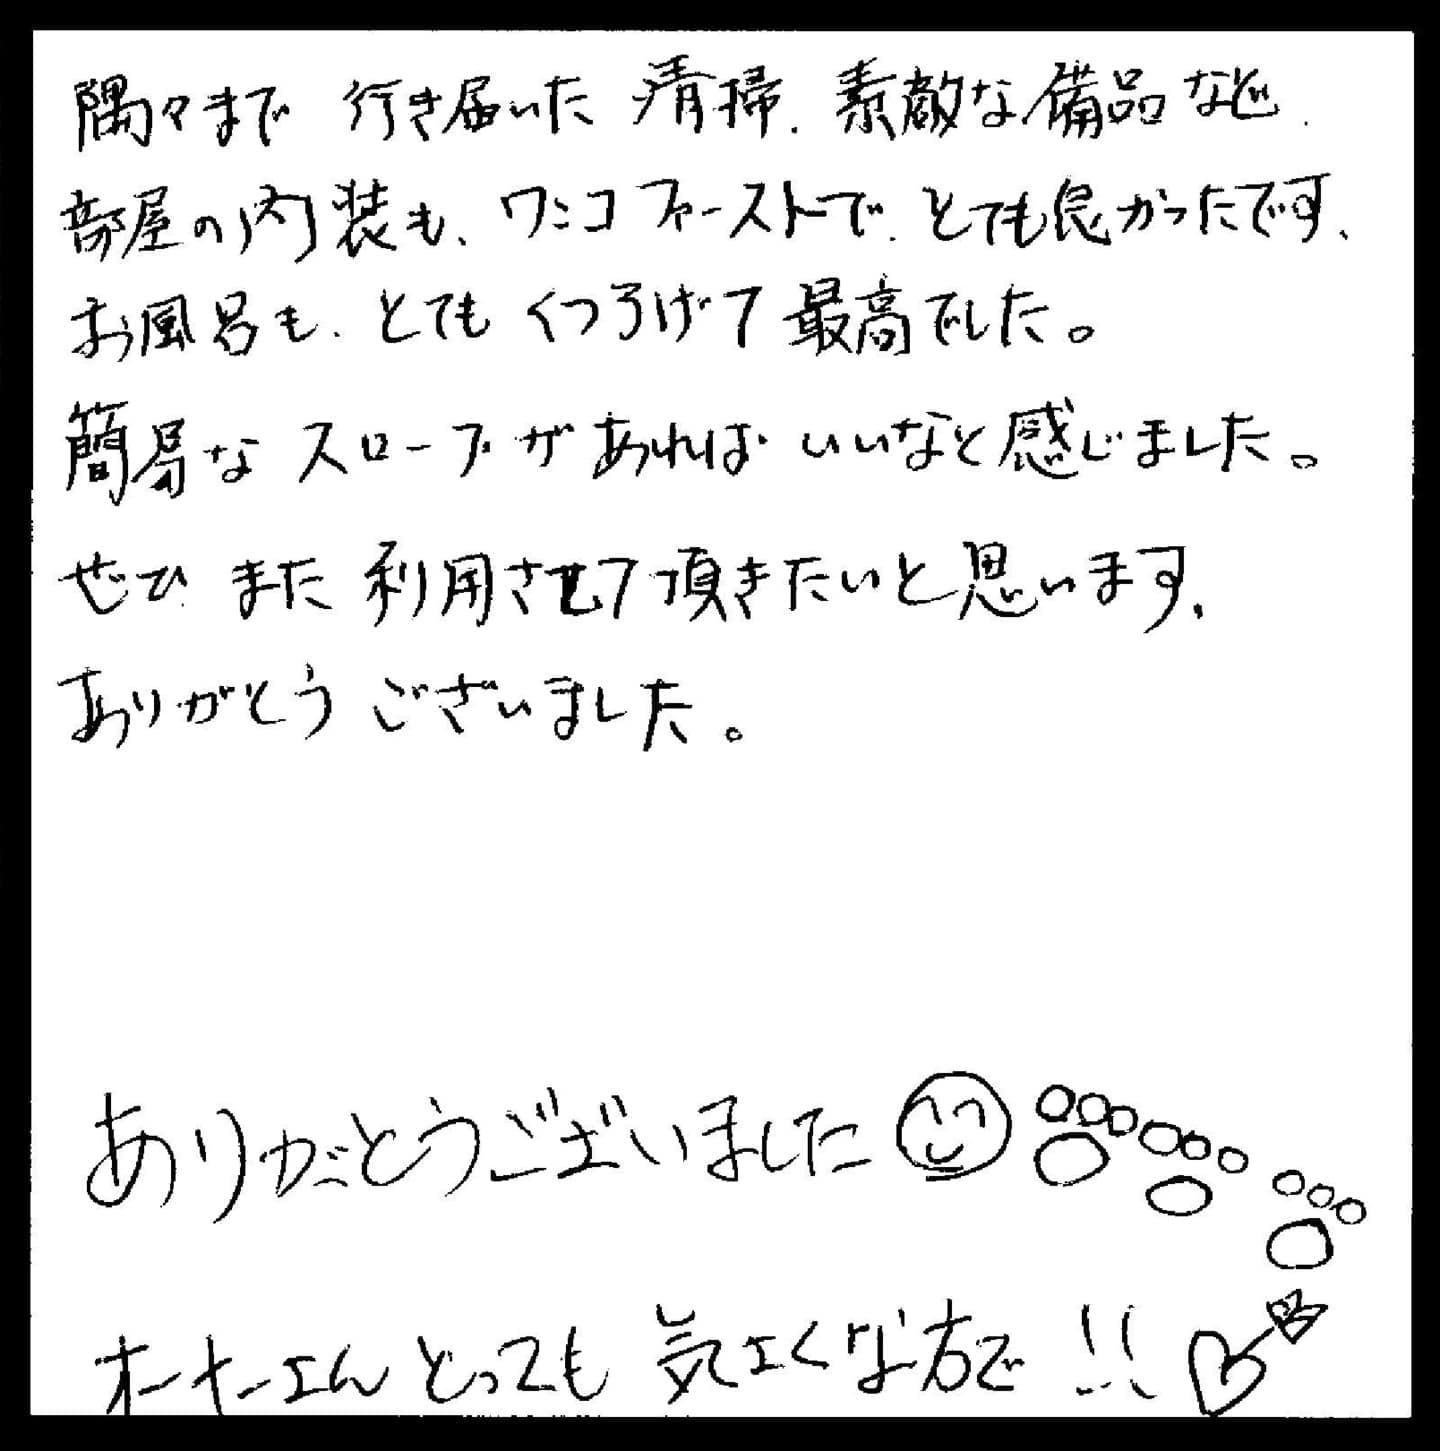 隅々まで 行き届いた 清掃、素敵な備品など、
部屋の内装も、ワンコファーストで、とても良かったです、
お風呂も、とても くつろげて 最高でした。
簡易な スロープが あれば いいなと感じました。
ぜひ また 利用させて頂きたいと思います、
ありがとう ございました。
ありがとうございました
オーナーさん とっても 気さくな方で!!